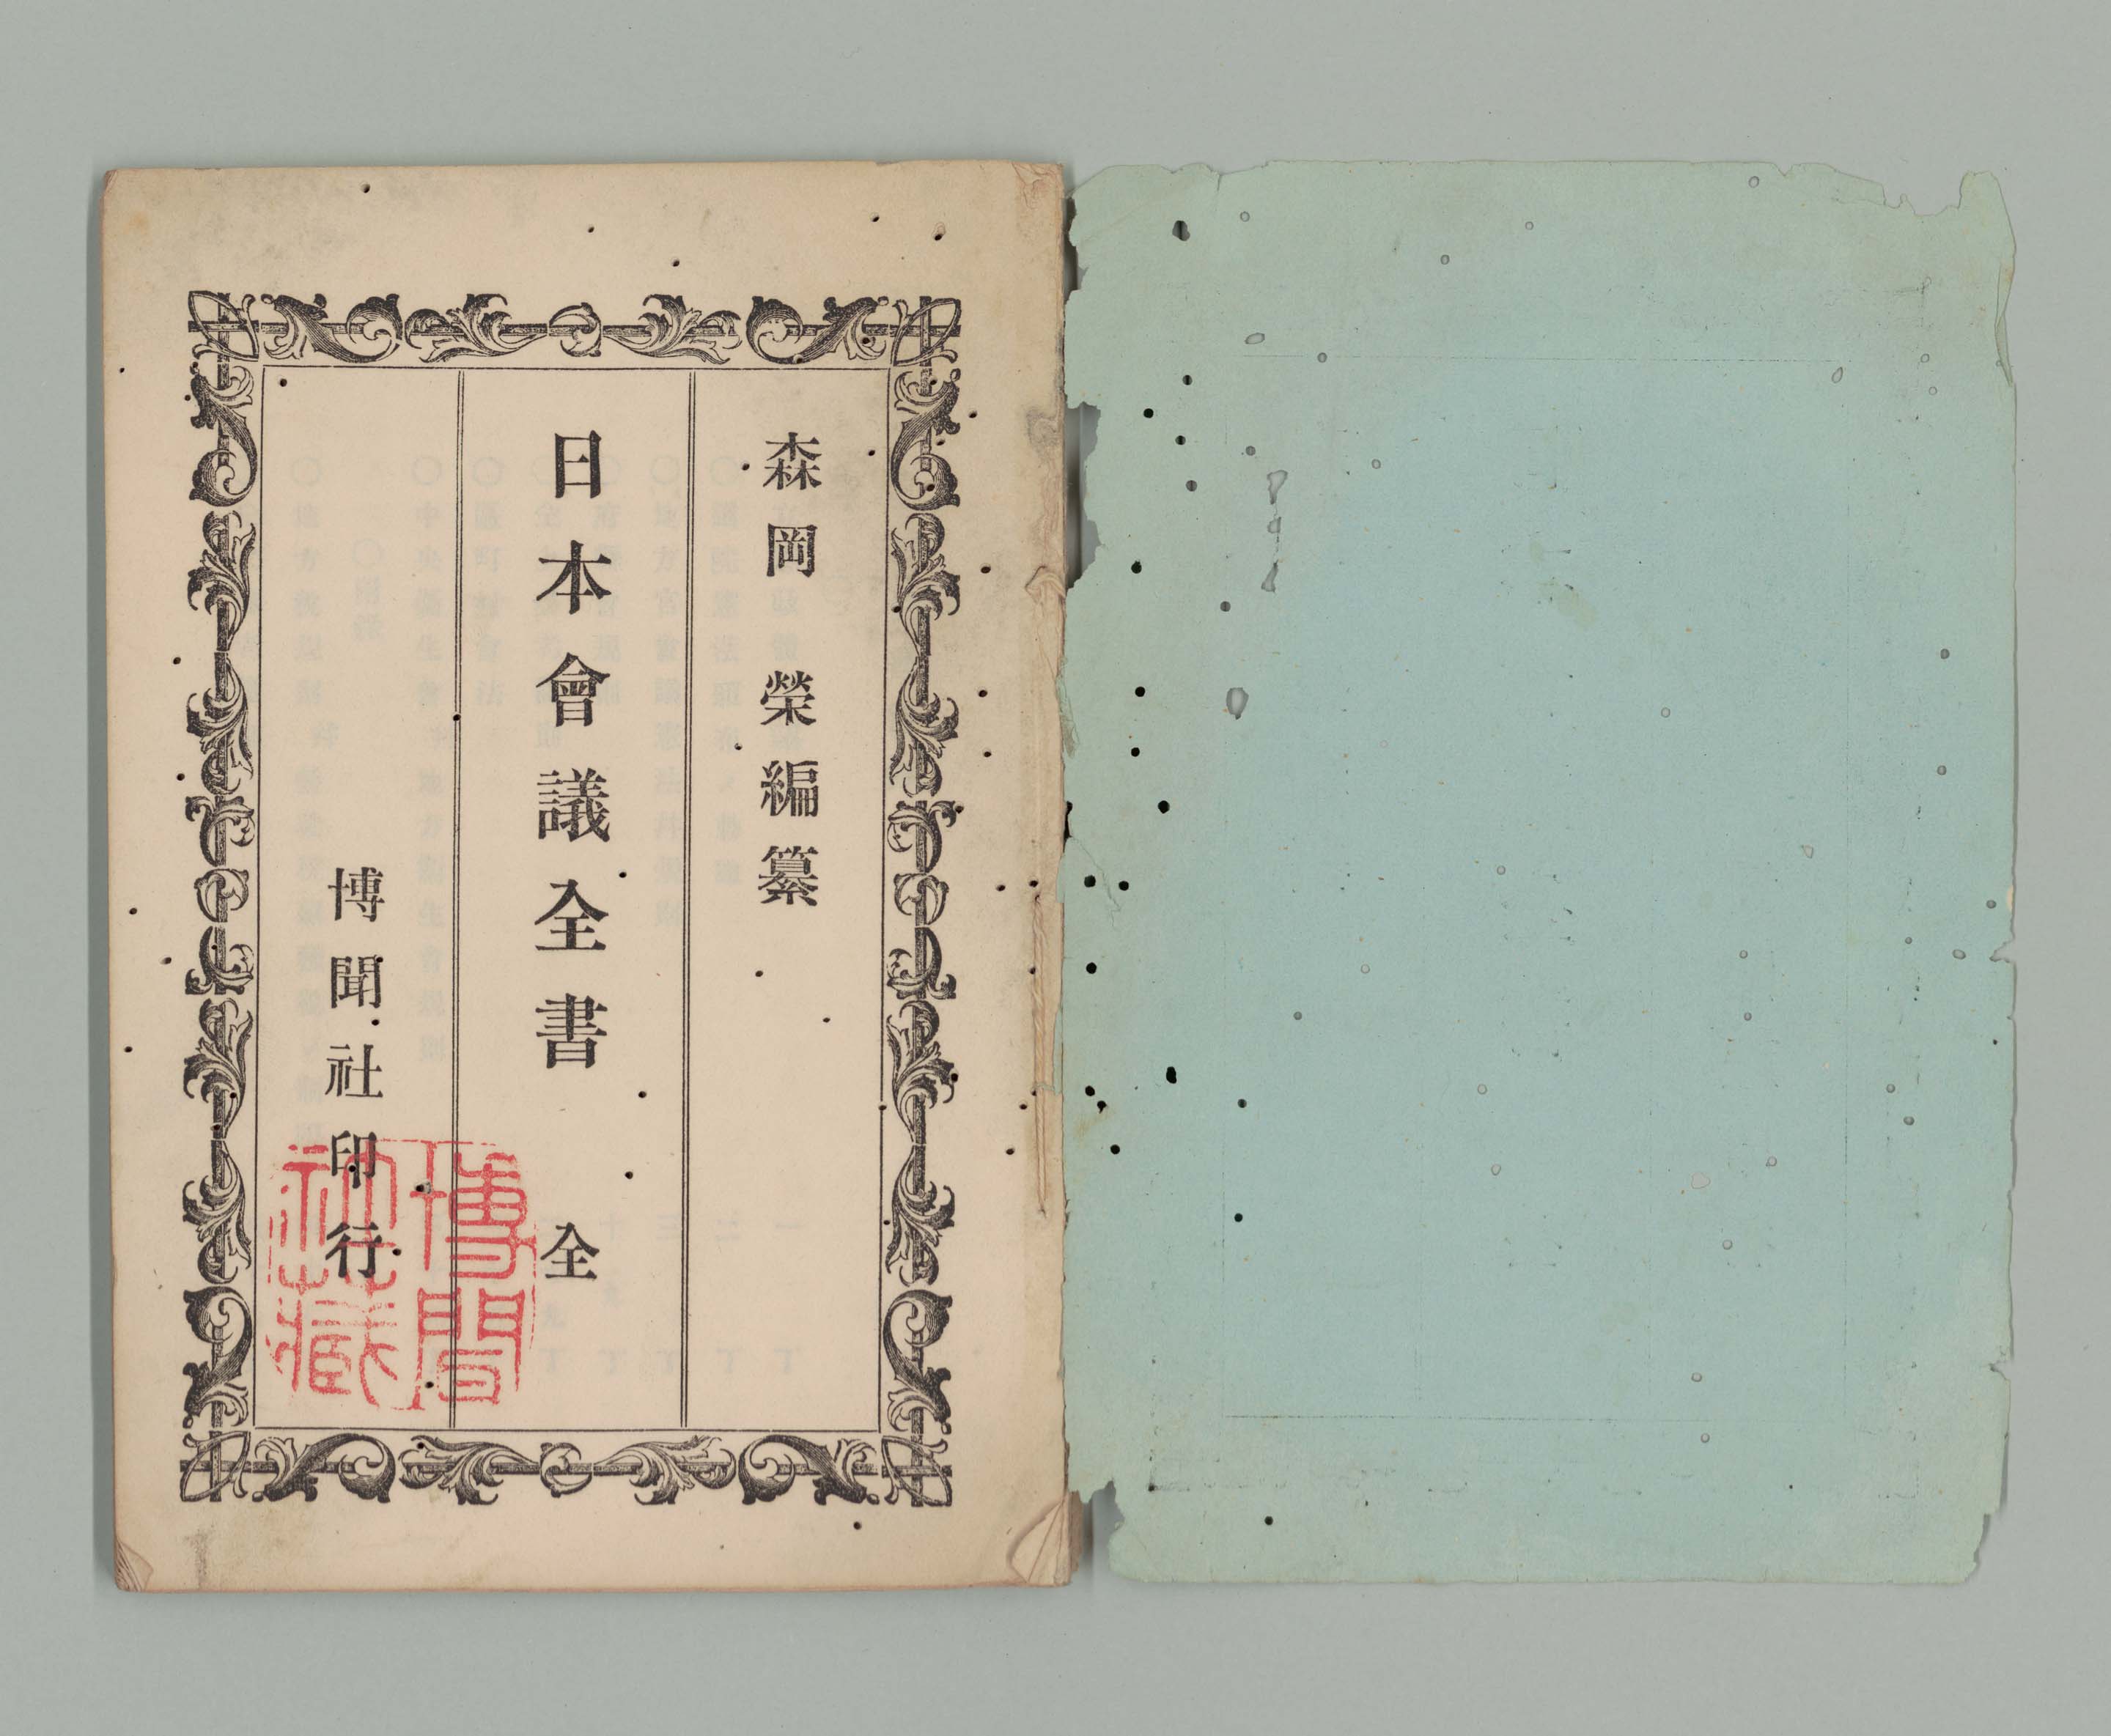 森岡榮編纂
日本會議全書 全
博聞社印行
博聞
社藏